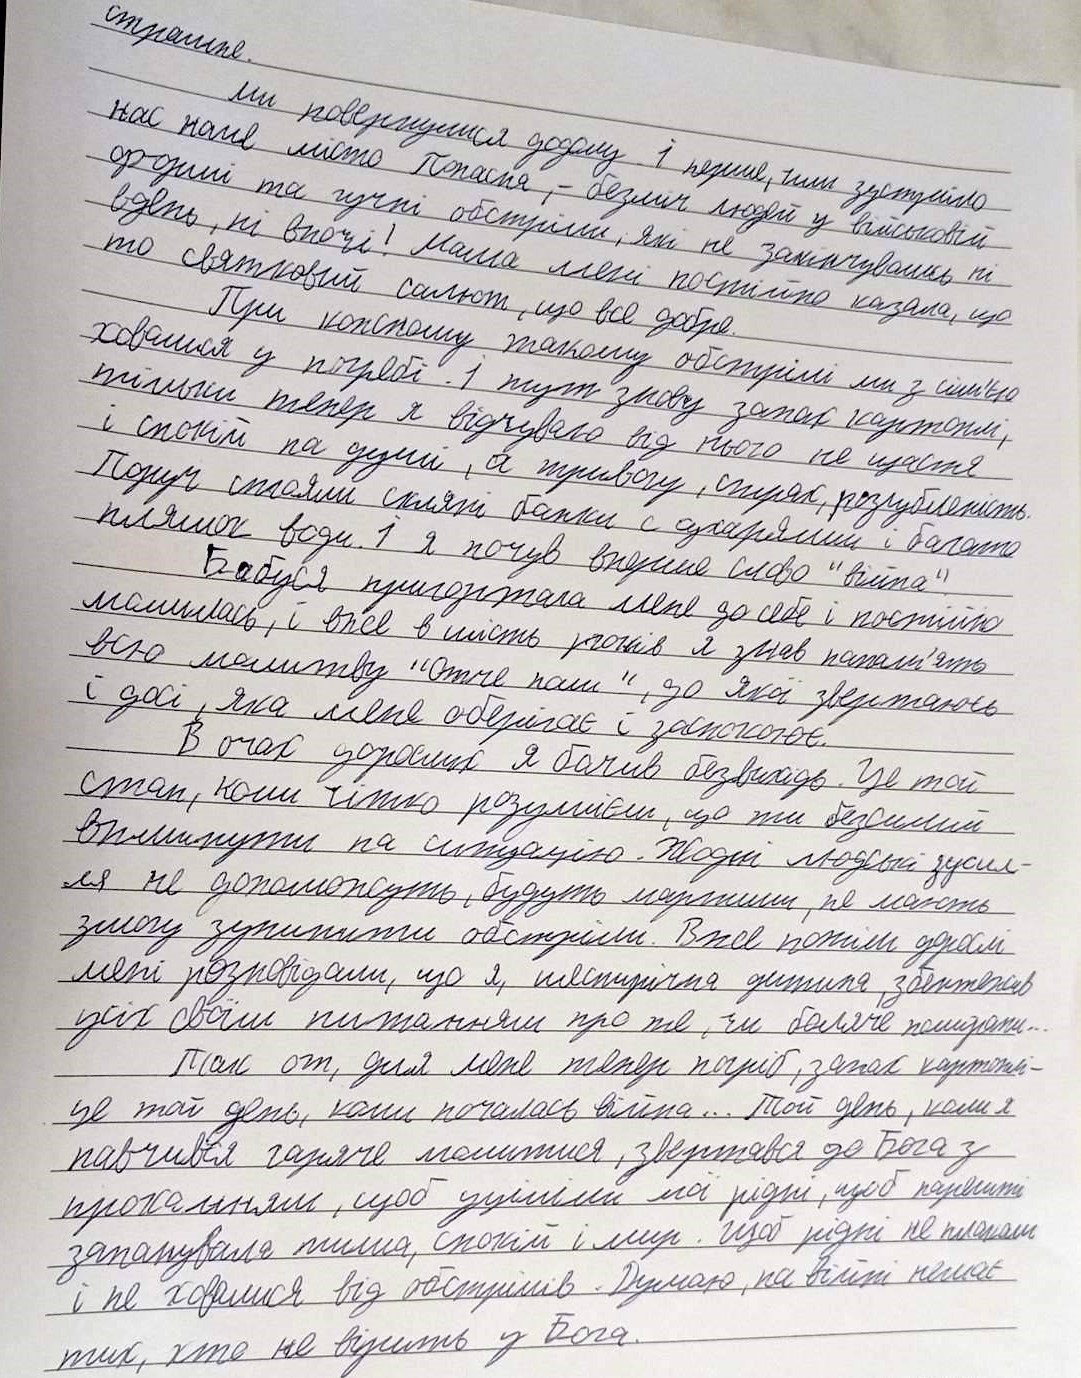 страшне.
Ми повернулися додому. І перше, чим зустріло
нас наше місто Попасна, – безліч людей у військовій
формі та гучні обстріли, які не закінчувались ні
вдень, ні вночі! Мама мені постійно казала, що
то святковий салют, що все добре.
При кожному такому обстрілі ми з сім'єю
ховалися у погребі. І тут знову запах картоплі,
тільки тепер я відчуваю від нього не щастя
і спокій на душі, а тривогу, страх, розгубленість.
Поруч стояли скляні банки с сухарями і багато
пляшок води. І я почув вперше слово "війна".
Бабуся пригортала мене до себе і постійно
молилась, і вже в шість років я знав напам'ять
всю молитву "Отче наш", до якої звертаюсь
і досі, яка мене оберігає і заспокоює.
В очах дорослих я бачив безвихідь. Це той
стан, коли чітко розумієш, що ти безсилий
вплинути на ситуацію. Жодні людські зусил-
ля не допоможуть, будуть марними, не мають
змогу зупинити обстріли. Вже потім дорослі
мені розповідали, що я, шестирічна дитина, збентежив
усіх своїм питанням про те, чи боляче помирати...
Так от, для мене тепер погріб, запах картоплі –
це той день, коли почалась війна... Той день, коли я
навчився гаряче молитися, звертався до Бога з
проханням, щоб уціліли мої рідні, щоб нарешті
запанувала тиша, спокій і мир. Щоб рідні не плакали
і не ховалися від обстрілів. Думаю, на війні немає
тих, хто не вірить у Бога.